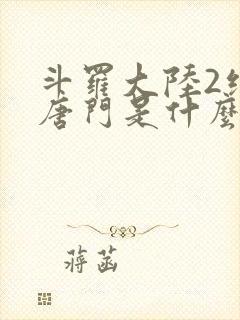 斗羅大陸2絕
唐門是什麼
蔣菡